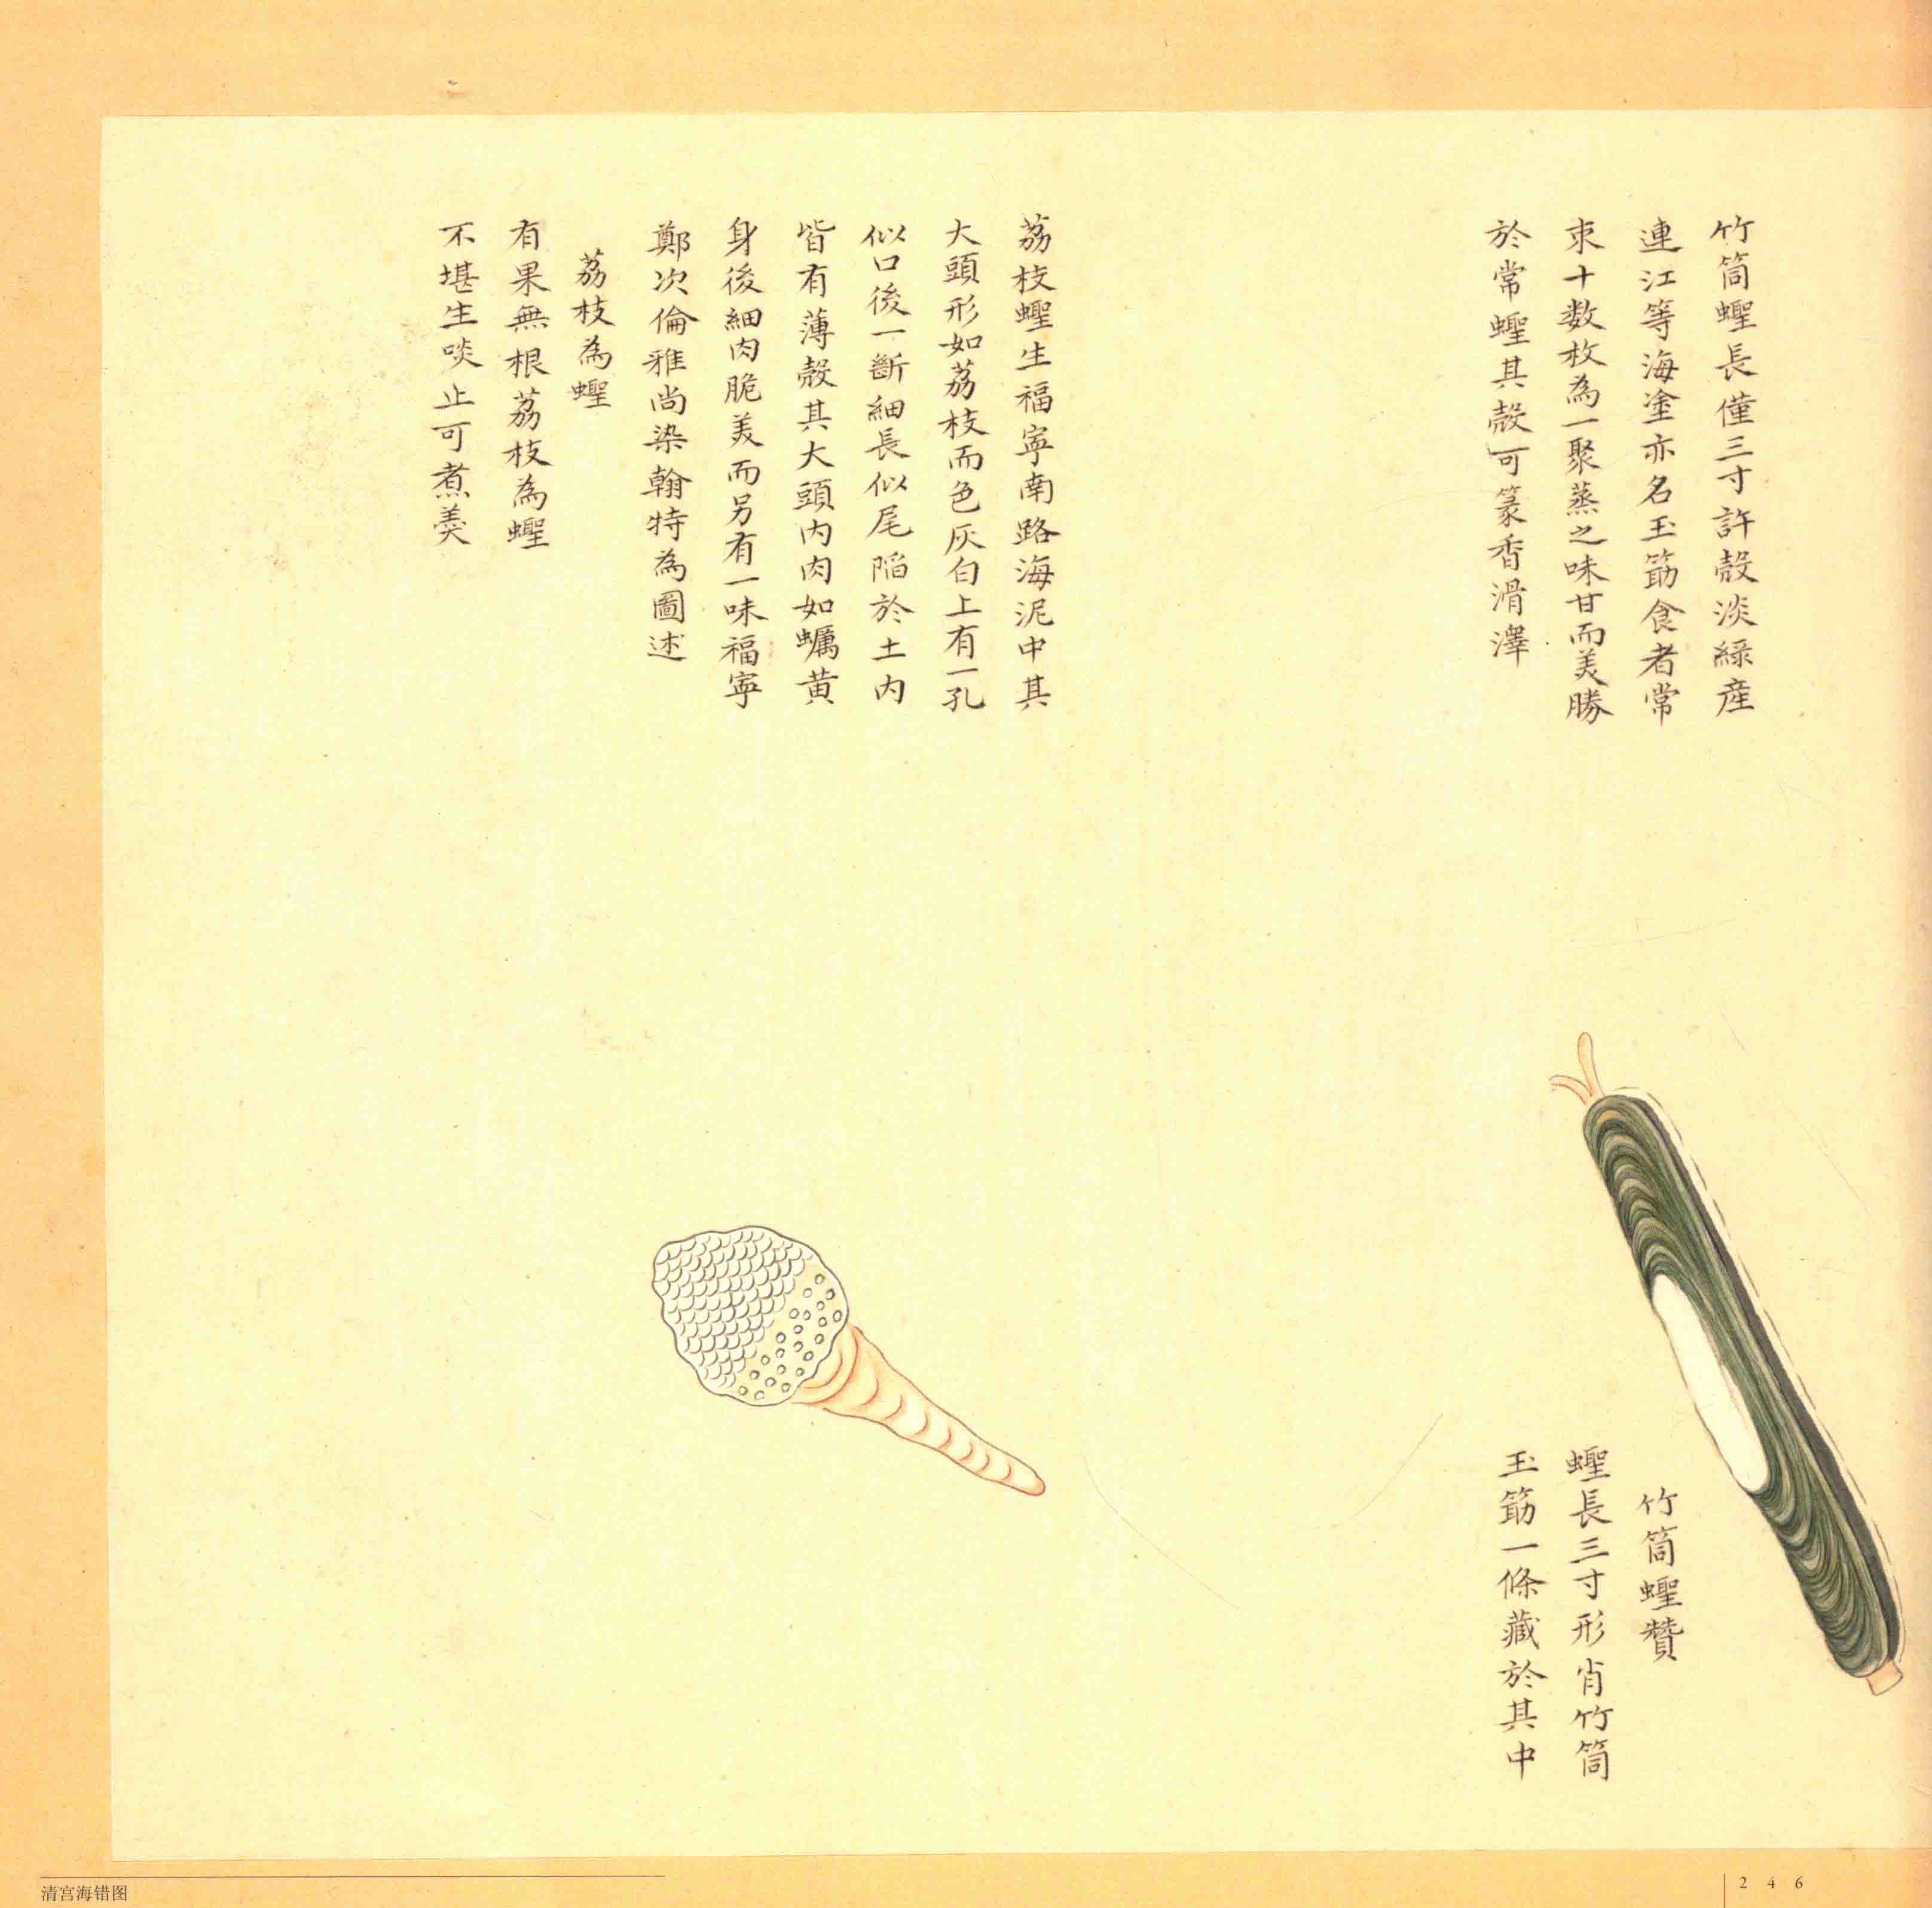 竹筒蟶長僅三寸許殼淡綠産
連江等海塗亦名玉筯食者常
束十数枚為一聚蒸之味甘而美勝
於常蟶其殼可篆香滑澤
竹筒蟶贊
蟶長三寸形肖竹筒
玉筯一條藏於其中
荔枝蟶生福寧南路海泥中其
大頭形如荔枝而色灰白上有一孔
似口後一斷細長似尾陷於土內
皆有薄殼其大頭內肉如蠣黃
身後細肉脆美而另有一味福寧
鄭次倫雅尚染翰特為圖述
荔枝為蟶
有果無根荔枝為蟶
不堪生啖止可煮羹
清宫海错图
246